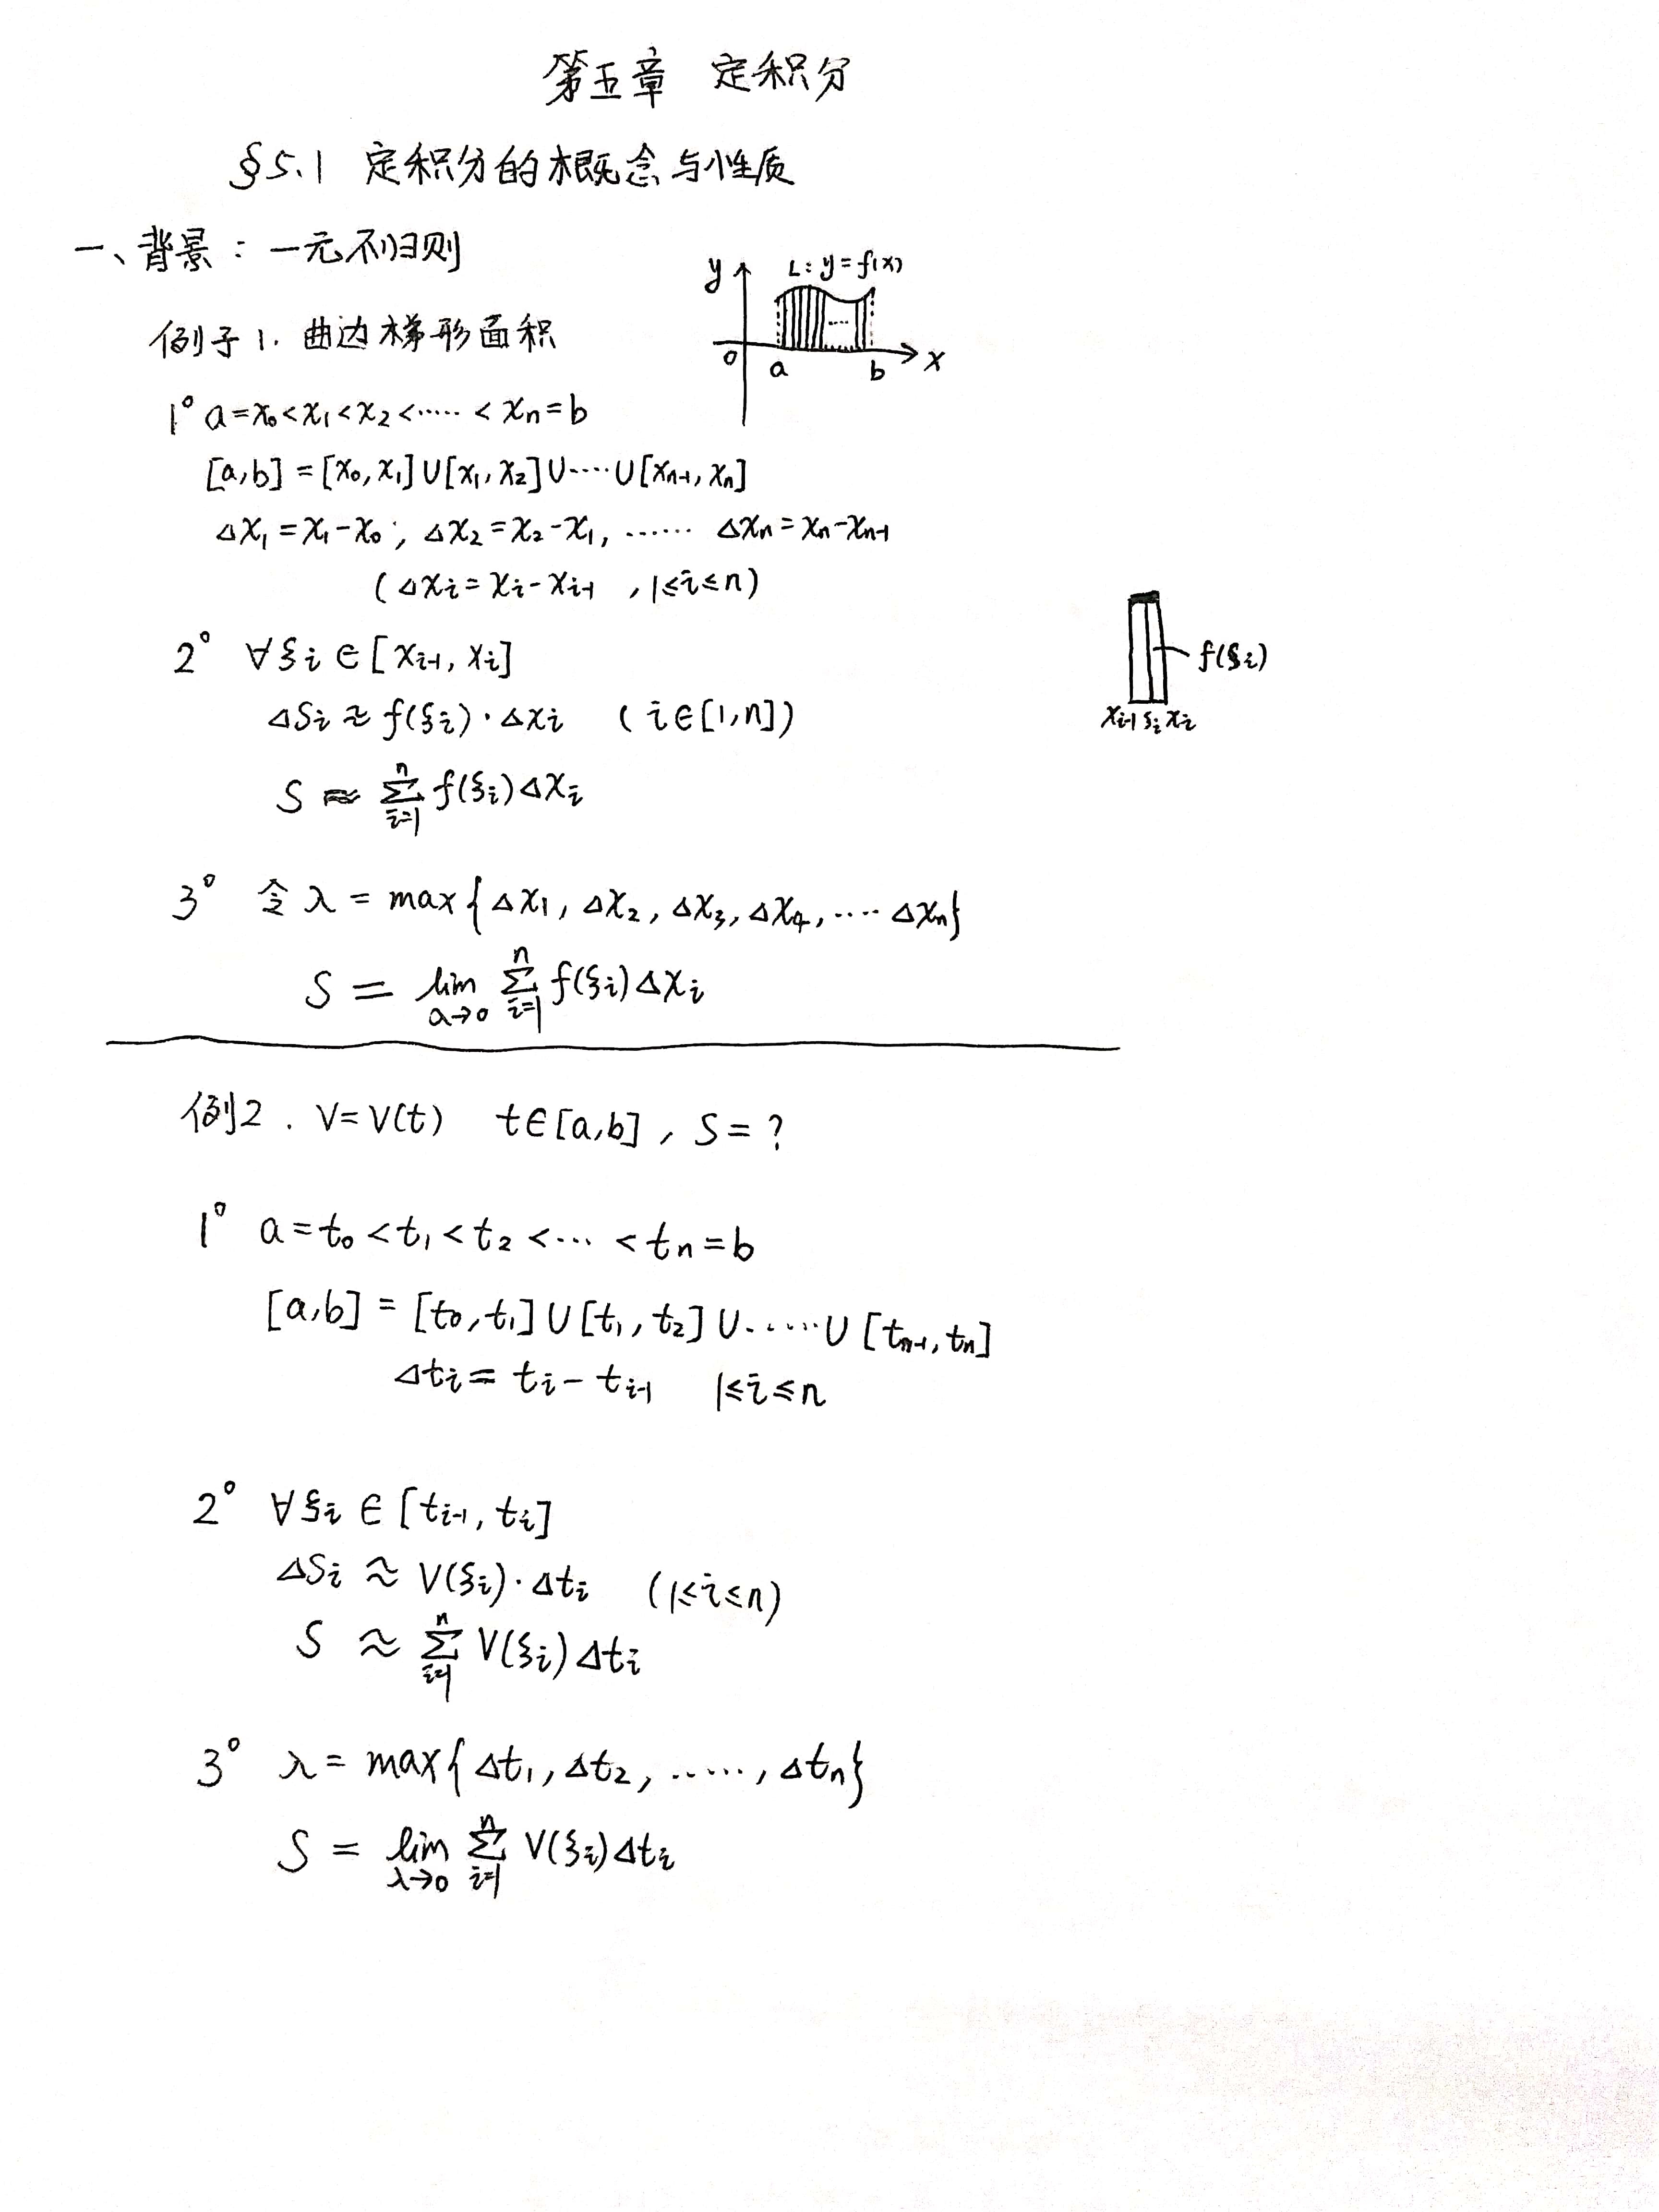 第五章 定积分
§5.1 定积分的概念与性质
一、背景：一元不归则
例子1. 曲边梯形面积
y L: y=f(x)
0 a b x
1° a=x₀<x₁<x₂<……<xₙ=b
[a,b]=[x₀,x₁]∪[x₁,x₂]∪……∪[xₙ₋₁,xₙ]
Δx₁=x₁-x₀; Δx₂=x₂-x₁, …… Δxₙ=xₙ-xₙ₋₁
(Δxᵢ=xᵢ-xᵢ₋₁ ,1≤i≤n)
2° ∀ξᵢ∈[xᵢ₋₁,xᵢ]
f(ξᵢ)
xᵢ₋₁ ξᵢ xᵢ
ΔSᵢ≈f(ξᵢ)·Δxᵢ (i∈[1,n])
S≈∑ⁿᵢ₌₁f(ξᵢ)Δxᵢ
3° 令λ=max{Δx₁,Δx₂,Δx₃,Δx₄,……Δxₙ}
S=lim a→0 ∑ⁿᵢ₌₁f(ξᵢ)Δxᵢ
例2. V=V(t) t∈[a,b], S=?
1° a=t₀<t₁<t₂<…<tₙ=b
[a,b]=[t₀,t₁]∪[t₁,t₂]∪……∪[tₙ₋₁,tₙ]
Δtᵢ=tᵢ-tᵢ₋₁ 1≤i≤n
2° ∀ξᵢ∈[tᵢ₋₁,tᵢ]
ΔSᵢ≈V(ξᵢ)·Δtᵢ (1≤i≤n)
S≈∑ⁿᵢ₌₁V(ξᵢ)Δtᵢ
3° λ=max{Δt₁,Δt₂,……,Δtₙ}
S=lim λ→0 ∑ⁿᵢ₌₁V(ξᵢ)Δtᵢ